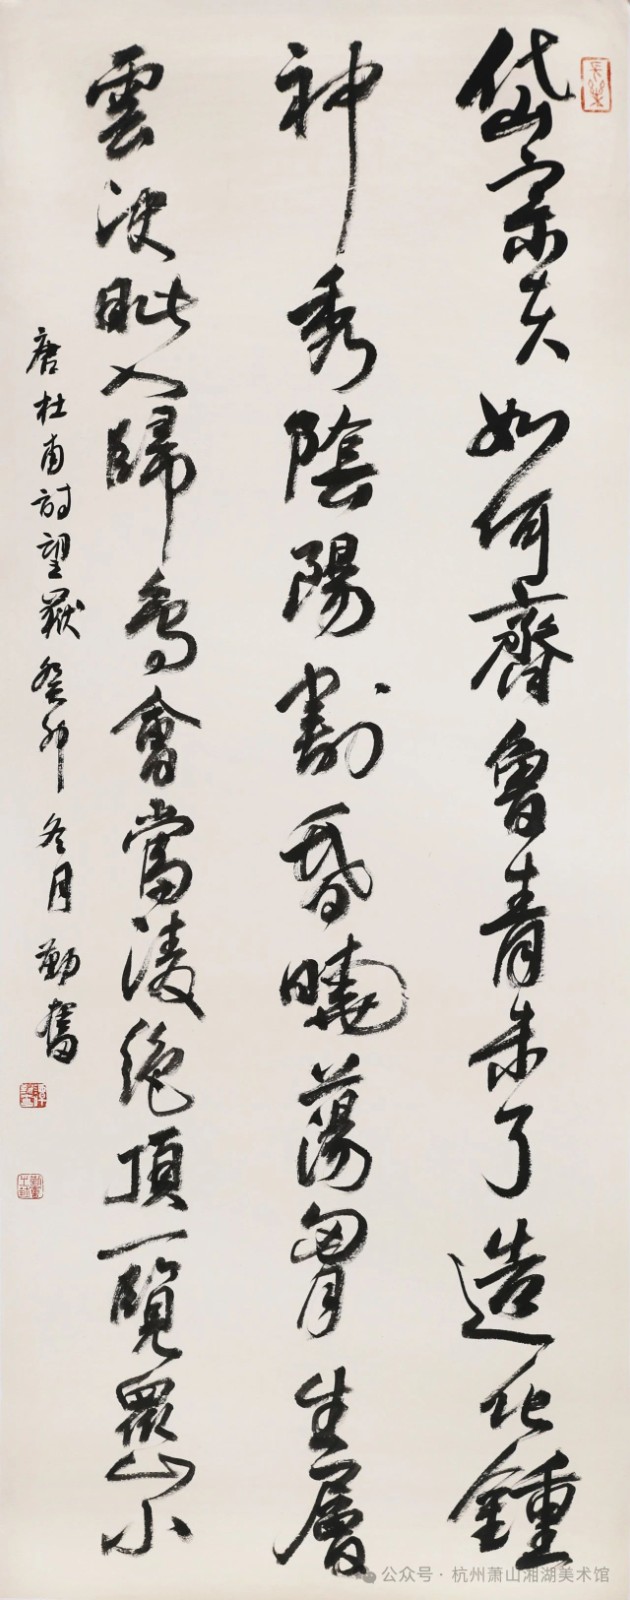 岱宗夫如何齊魯青未了造化鍾
神秀陰陽割昏曉蕩胷生層
雲決眦入歸鳥會當凌絕頂一覽眾山小
唐杜甫詩望嶽癸卯冬月勤奮
公众号·杭州萧山湘湖美术馆